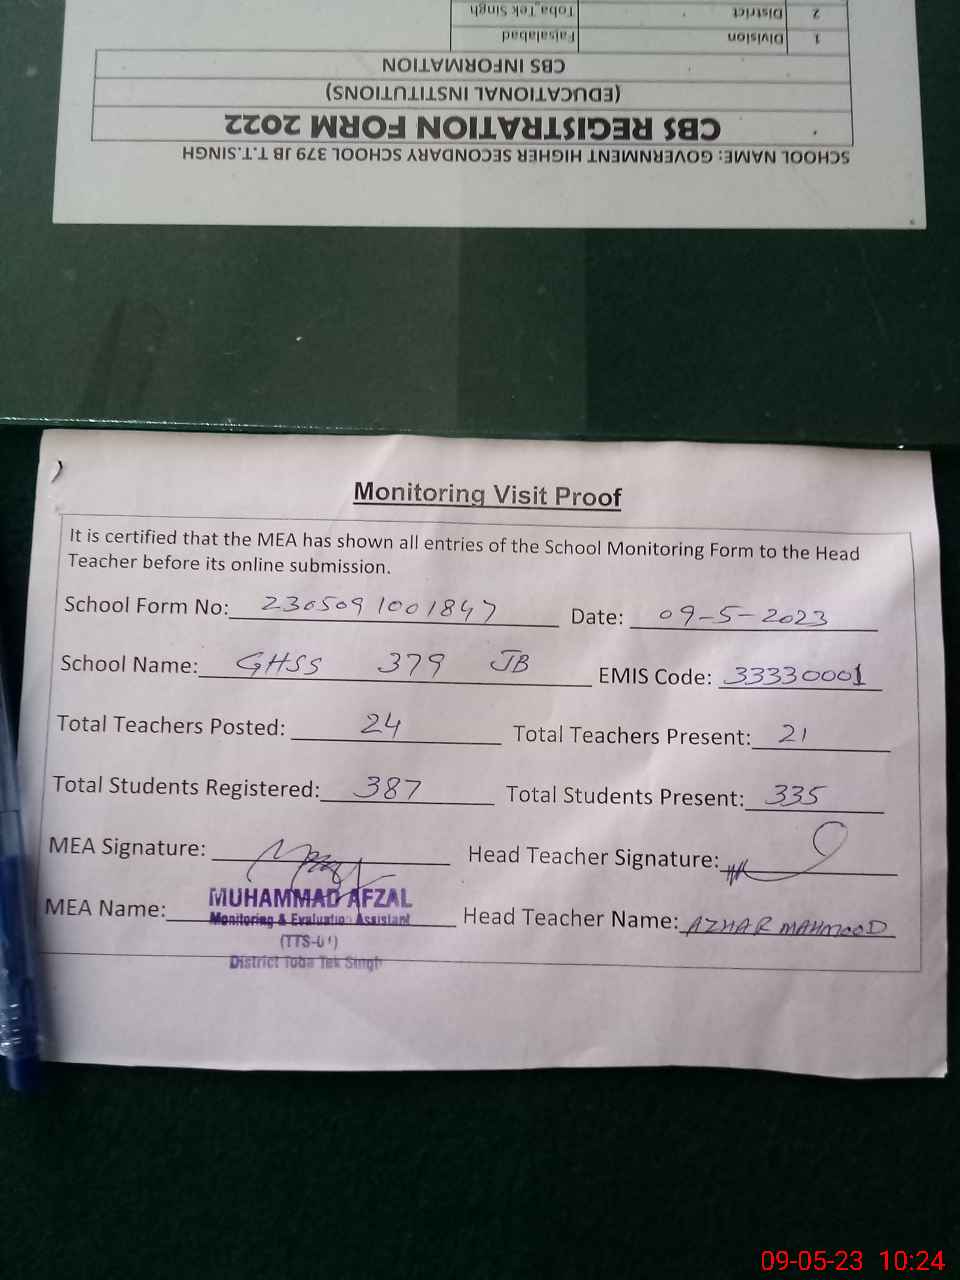 2 District Toba Tek Singh
1 Division Faisalabad
CBS INFORMATION
(EDUCATIONAL INSTITUTIONS)
CBS REGISTRATION FORM 2022
SCHOOL NAME: GOVERNMENT HIGHER SECONDARY SCHOOL 379 JB T.T.SINGH
Monitoring Visit Proof
It is certified that the MEA has shown all entries of the School Monitoring Form to the Head
Teacher before its online submission.
School Form No: 2305091001847 Date: 09-5-2023
School Name: GHSS 379 JB EMIS Code: 33330001
Total Teachers Posted: 24 Total Teachers Present: 21
Total Students Registered: 387 Total Students Present: 335
MEA Signature: Head Teacher Signature:
MEA Name: MUHAMMAD AFZAL Head Teacher Name: AZHAR MAHMOOD
Monitoring & Evaluation Assistant
District Toba Tek Singh
09-05-23 10:24